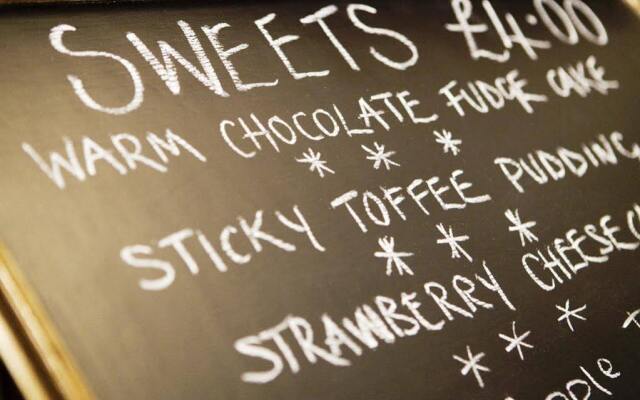 SWEETS £4.00
WARM CHOCOLATE FUDGE CAKE
* * *
STICKY TOFFEE PUDDING
* * *
STRAWBERRY CHEESEC
* * *